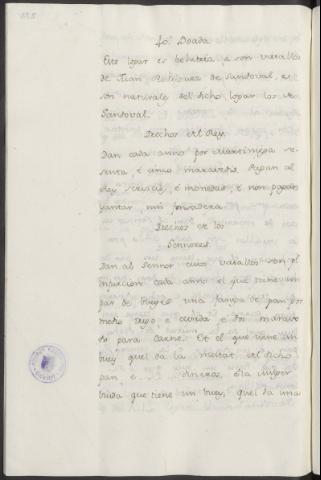 fo. Doada
Este logar es behetria, e son vasallos
de Juan Rodriguez de Sandoval, e
son naturales del dicho logar los de
Sandoval.
Derechos del Rey.
Dan cada anno por Martiniega se-
senta, e cinco maravedis. Pagan al
Rey servicios, e monedas, e non pagan
yantar, nin fonsadera.
Derechos de los
Sennores.
Dan al Sennor cuios vasallos son por
infurcion cada anno el que tiene un
par de bueyes una fanega de pan por
medio trigo e cevada e un marave-
di para carne. Et el que tiene un
buey quel da la meitat del dicho
pan e dineros, e la muger
biuda que tiene un buey, quel da una